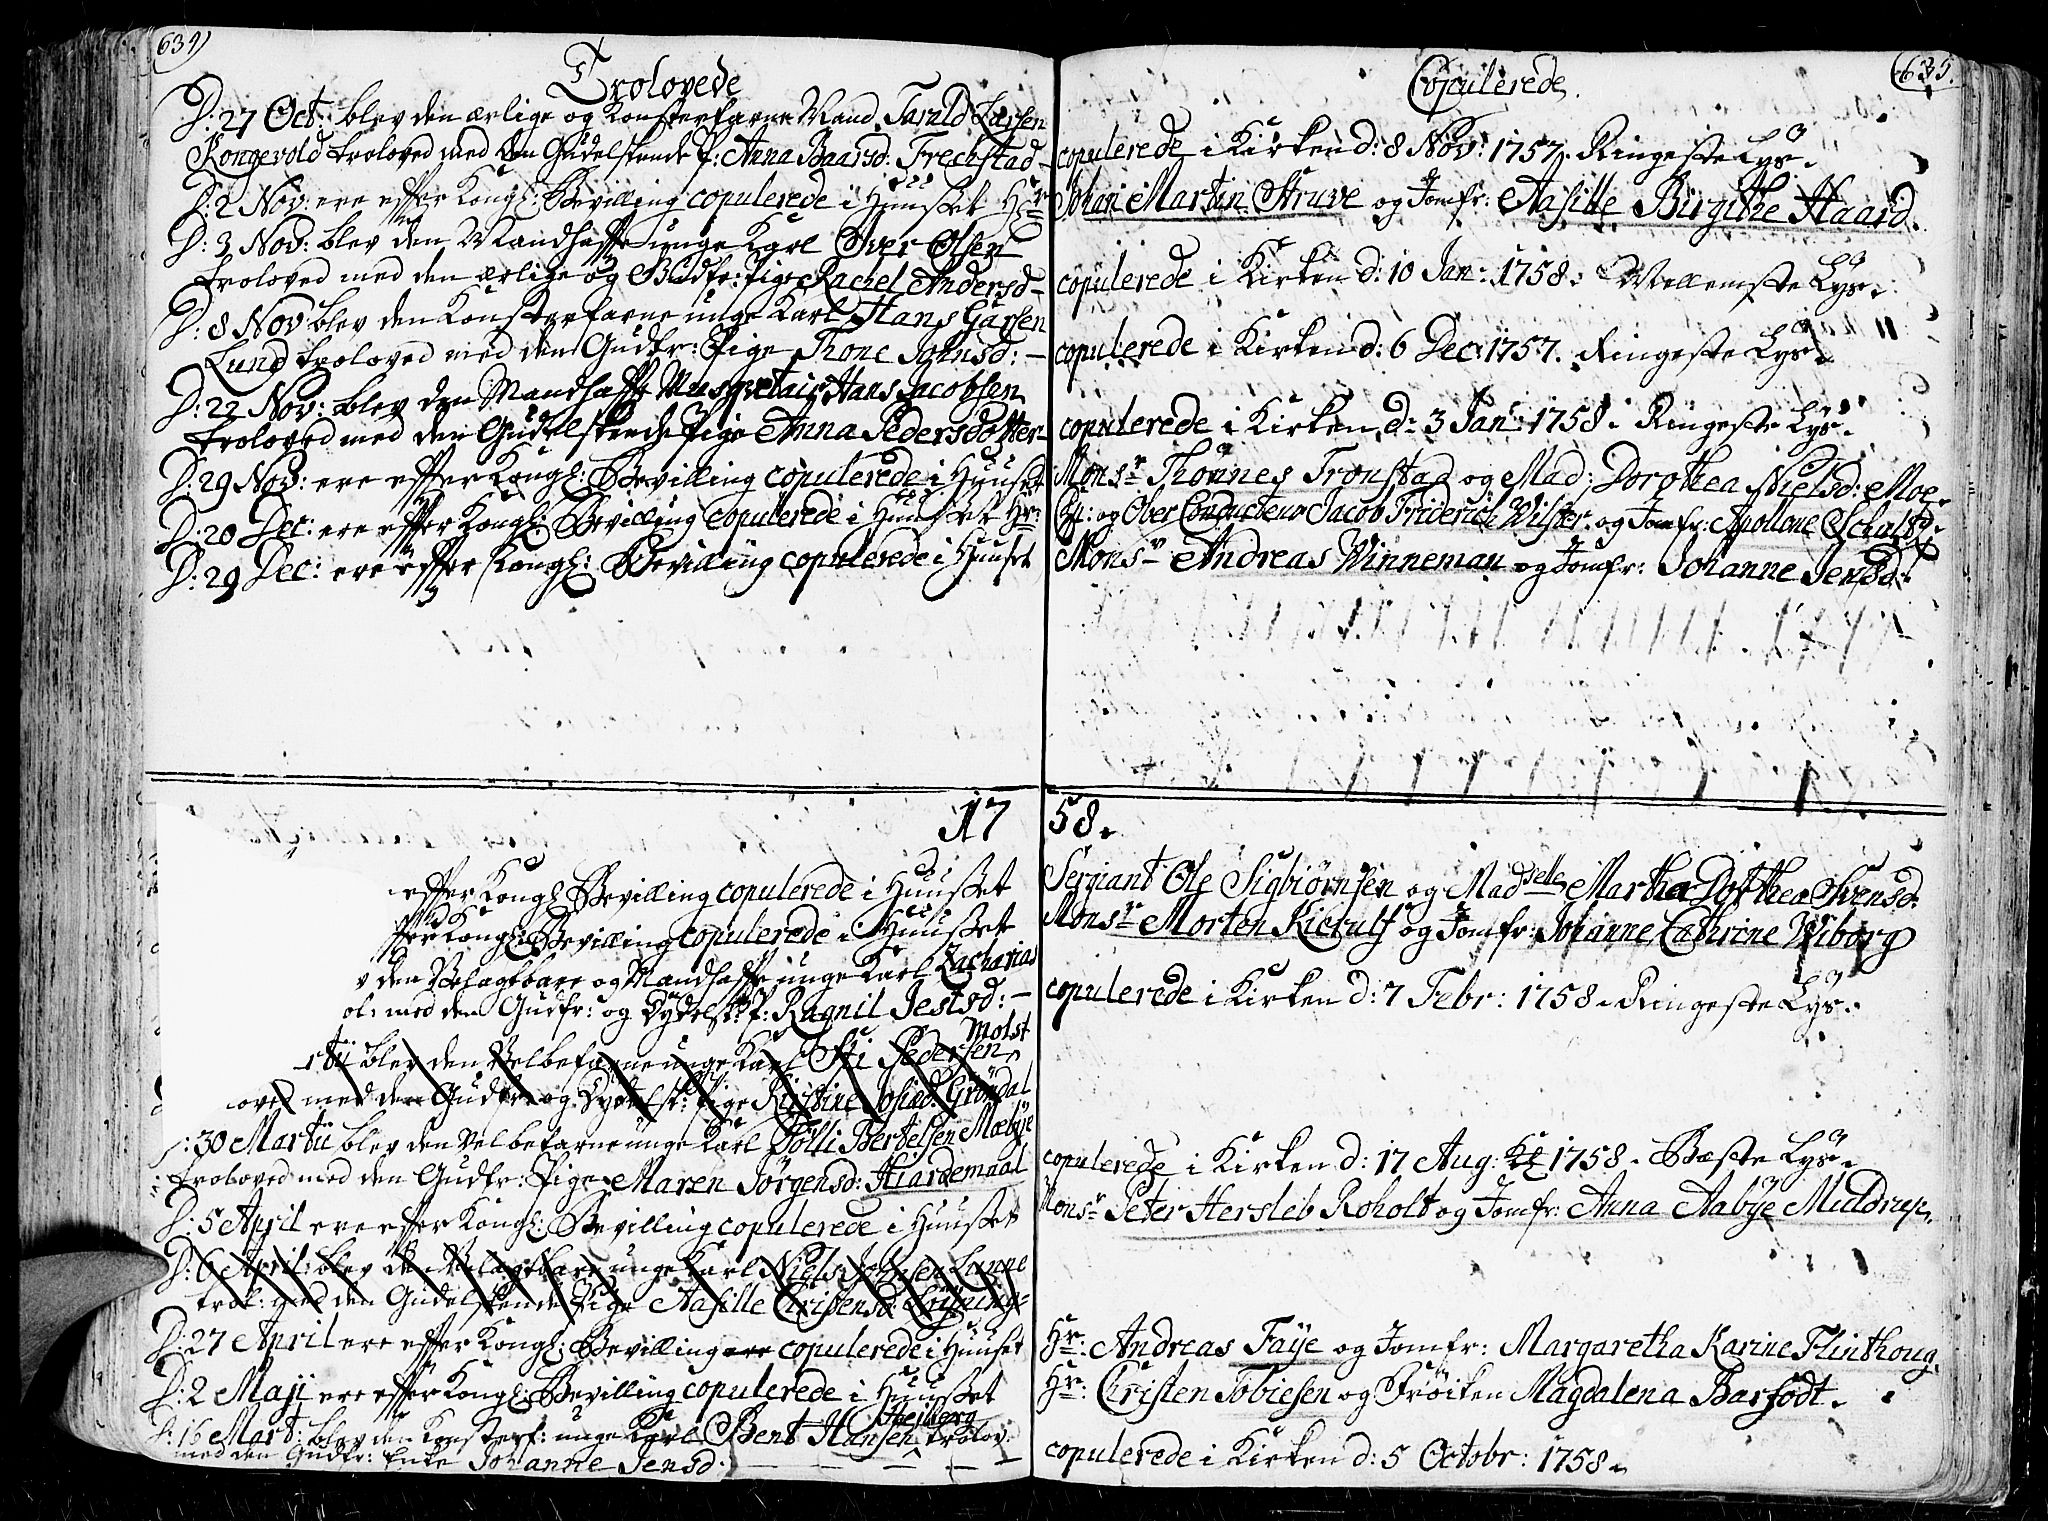 634)
Trolovede
D: 27 Oct: blev den ærlige og Konsterfarne Mand Taruld Larsen
Kongevold troloved med den Gudelskende P: Anna Baarsd: Frechstad –
D: 2 Nov: ere effter Kongl: Bevilling copulerede i Huuset Hr
D: 3 Nov: blev den Mandhaffte unge Karl Iver Olsen
troloved med den ærlige og Gudfr: Pige Rachel Andersd –
D: 8 Nov: blev den Konsterfarne unge Karl Hans Garsen
Lund troloved med den Gudfr: Pige Thone Johnsd: –
D: 22 Nov: blev den Mandhaffte Musqvetair Hans Jacobsen
troloved med den Gudelskende Pige Anna Pedersdotter –
D: 29 Nov: ere effter Kongl: Bevilling copulerede i Huuset
D: 20 Dec: ere effter Kongl: Bevilling copulerede i Huuset Hr:
D: 29 Dec: ere effter Kongl: Bevilling copulerede i Huuset
17
effter Kongl: Bevilling copulerede i Huuset
ffter Kongl: Bevilling copulerede i Huuset
v den Velagtbare og Mandhaffte unge Karl Zacharias
ol: med den Gudfr: og Dydelsk: P: Ragnil Jestsd: –
Molst
rtii blev den Velbefarne unge Karl Sti Pedersen
oved med den Gudfr: og Dydelsk: Pige Kirstine Gröndal
: 30 Martii blev den Velbefarne unge Karl Tölli Bertelsen Mæbye
troloved med den Gudfr: Pige Maren Jörgensd: Hiardemaal
D: 5 April ere effter Kongl: Bevilling copulerede i Huuset
D: 6 April: blev den Velagtbare unge Karl Niels Johnsen Lunne
trol: med den Gudelskende Pige Aasille Crisensd:
D: 27 April ere effter Kongl: Bevilling ere copulerede i Huuset
D: 2 Maji ere effter Kongl: Bevilling copulerede i Huuset
Heiberg
D: 16 Mart: blev den Konsterf: unge Karl Bent Hansen trolov:
med den Gudfr: Enke Johanne Jensd:
635.
Copulerede
copulerede i Kirken d: 8 Nov: 1757. Ringeste Lys.
Johan Martin Struve og Jomfr: Aasille Birgithe Haard.
copulerede i Kirken d: 10 Jan: 1758. Mellemste Lys.
copulerede i Kirken d: 6 Dec: 1757. Ringeste Lys.
copulerede i Kirken d: 3 Jan: 1758. Ringeste Lys.
Monsr Thönnes Tronstad og Mad: Dorothea Nielsd: Moe.
og Over Conducteur Jacob Friderich Wilster og Jomfr: Apollone
Monsr Andreas Winneman og Jomfr: Johanne Jensd:
58.
Sergiant Ole Sigbiörnsen og Madselle Martha Dorthea Svensd:
Monsr Morten Kierulf og Jomfr: Johanne Cathrine Wiborg
copulerede i Kirken d: 7 Febr: 1758. Ringeste Lys.
copulerede i Kirken d: 17 Aug: 1758. Bæste Lys.
Monsr Peter Hersleb Roholt og Jomfr: Anna Aabye Muldrup.
Hr: Andreas Faÿe og Jomfr: Margaretha Karine Flinthoug.
Hr: Christen Tobiesen og Fröiken Magdalena Barfodt.
copulerede i Kirken d: 5 Octobr: 1758.